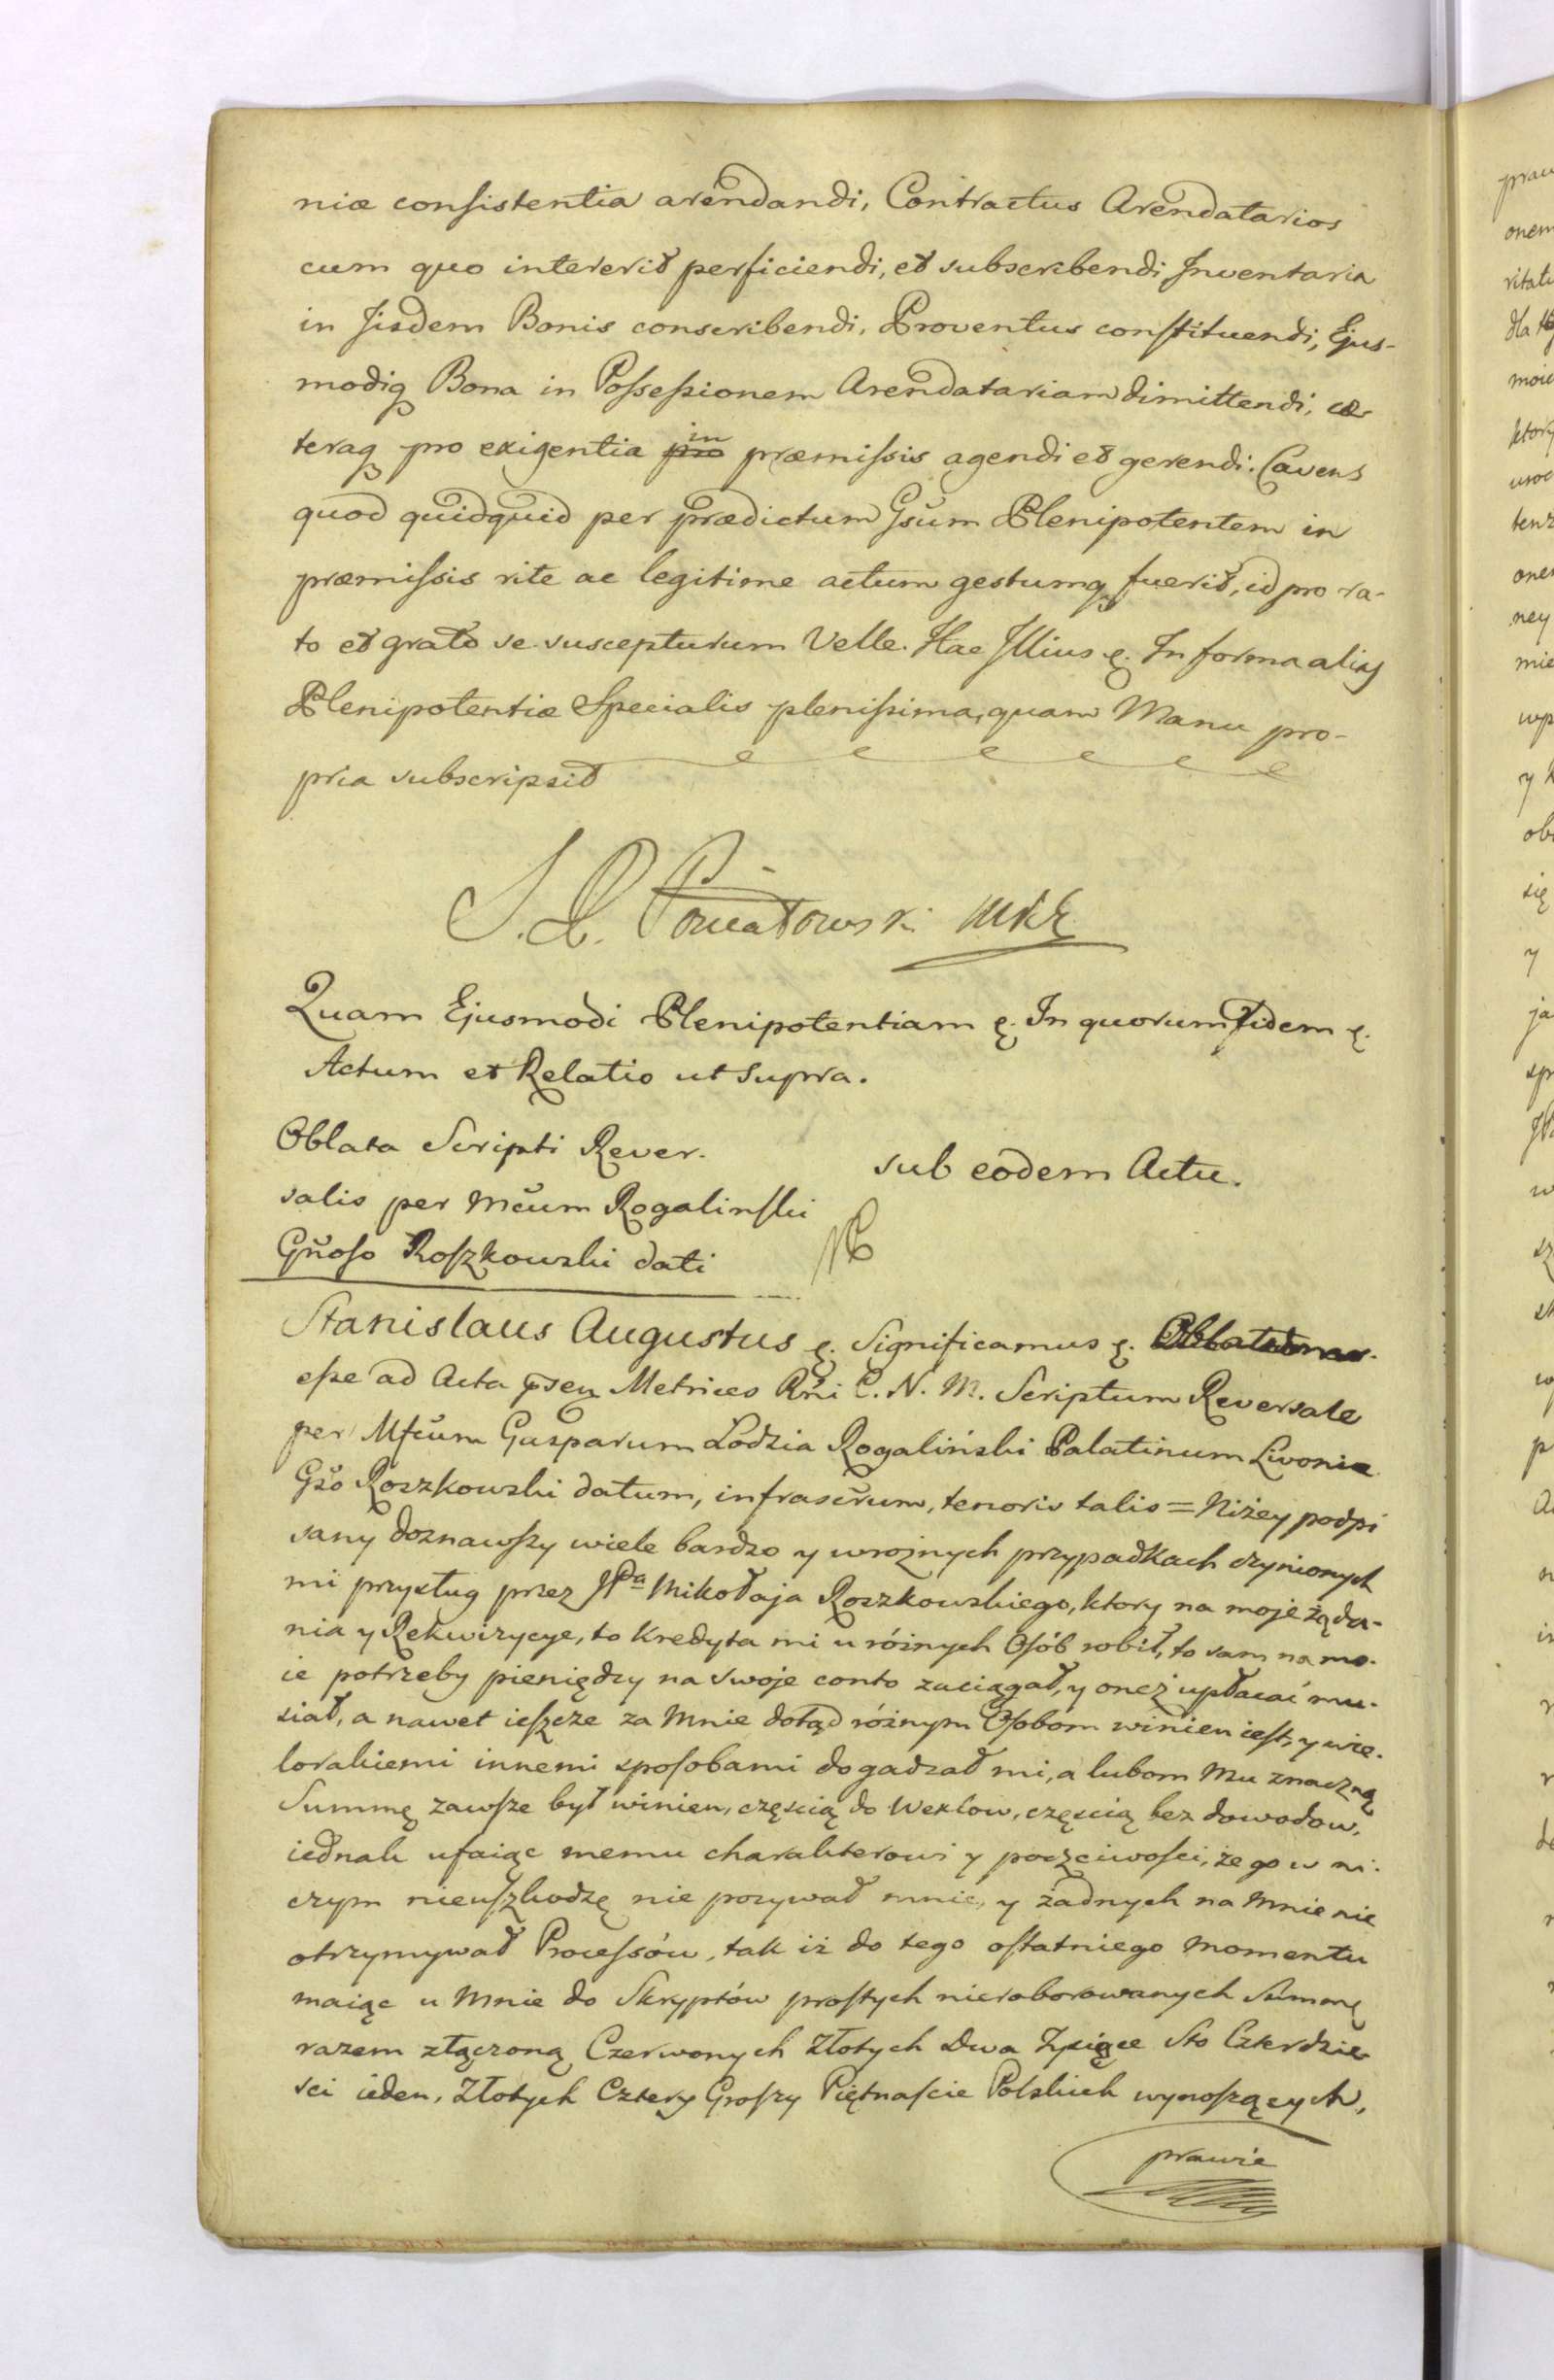 niæ consistentia arendandi, Contractus Arendatarios
cum quo intererit perficiendi, et subscribendi Inventaria
in Iisdem Bonis conscribendi, Proventus constituendi, Ejus-
modiq Bona in Possessionem Arendatariam dimittendi, cæ-
teraq pro exigentia in præmissis agendi et gerendi. Cavens
quod quidquid per prædictum Gsum Plenipotentem in
præmissis rite ac legitime actum gestumq fuerit, id pro ra-
to et grato se suscepturum Velle. Hac Illius &. In forma alias
Plenipotentiæ Specialis plenissima, quam Manu pro-
pria subscripsit
Quam Ejusmodi Plenipotentiam &. In quorum fidem &.
Actum et Relatio ut Supra.
Oblata Scripti Rever-
salis per Mcum Rogalinski
Gnoso Roszkowski dati
sub eodem Actu.
Stanislaus Augustus &. Significamus &.
esse ad Acta Metrices Rni C. N. M. Scriptum Reversale
per Mfcum Gasparum Łodzia Rogaliński Palatinum Livoniæ
Gso Roszkowski datum, infrascrum, tenoris talis = Niżey podpi
sany doznawszy wiele bardzo y w rożnych przypadkach czynionych
mi przysług przez JPa Mikołaja Roszkowskiego, ktory na moje żąda-
nia y Rekwizycye, to Kredyta mi u różnych Osób robił, to sam na mo-
ie potrzeby pieniędzy na swoje conto zaciągał, y onez upłacać mu-
siał, a nawet ieszcze za Mnie dotąd różnym Osobom winien iest, y wie-
lorakiemi innemi sposobami dogadzał mi, a lubom Mu znaczną
Summę zawsze był winien, częscią do Wexlow, częscią bez dowodow,
iednak ufaiąc memu charakterowi y poczciwosci, że go w ni-
czym nieuszkodzę nie pozywał mnie, y żadnych na Mnie nie
otrzymywał Processów, tak iż do tego ostatniego momentu
maiąc u Mnie do Skryptów prostych nieroborowanych Summę
razem złączoną Czerwonych Złotych Dwa Tysiące Sto Czterdzie
sci ieden, Złotych Cztery Groszy Piętnascie Polskich wynoszących,
prawie